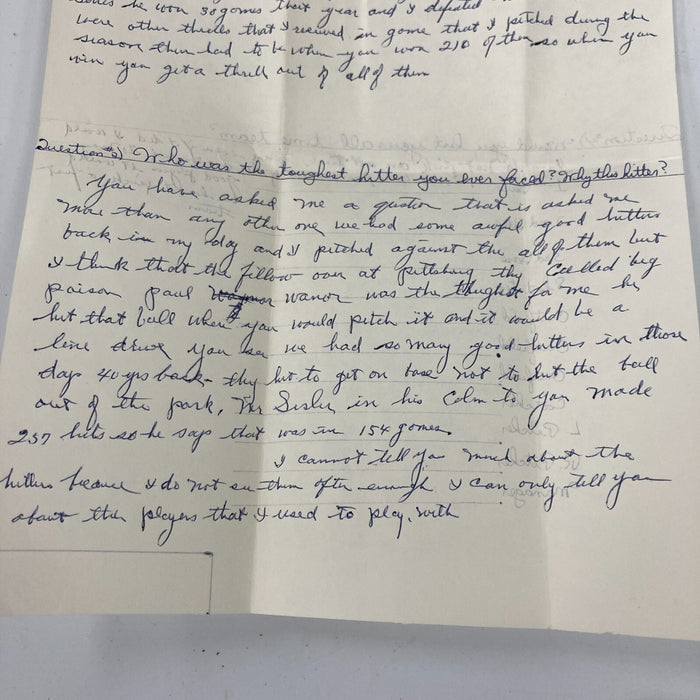 he won 30 games that year and I defeated
were other thrills that I received in game that I pitched during the
season then had to be when you won 210 of them so when you
win you get a thrill out of all of them
Question #2 Who was the toughest hitter you ever faced? Why this hitter?
You have asked me a question that is asked me
more than any other one we had some awful good hitters
back in my day and I pitched against the all of them but
I think that the fellow over at pittsburg thy called big
poison paul wanor was the thughest for me he
hit that ball where you would pitch it and it would be a
line drive you see we had so many good hitters in those
days 40 yrs back - they hit to get on base not to hit the ball
out of the park, Mr Sisler in his Colm to you made
257 hits so he says that was in 154 games.
I cannot tell you much about the
hitters because I do not see them often enough I can only tell you
about the players that I used to play. with